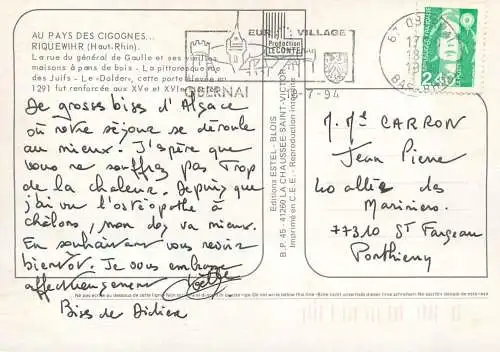 AU PAYS DES CIGOGNES...
RIQUEWIHR (Haut-Rhin).
La rue du général de Gaulle et ses vieilles
maisons à pans de bois - La pittoresque rue
des Juifs - Le «Dolder», cette porte élevée en
1291 fut renforcée aux XVe et XVIe siècles
De grosses bises d'Alsace
où notre séjour se déroule
au mieux. J'espère que
vous ne souffrez pas trop
de la chaleur. Depuis que
j'ai vu l'ostéopathe à
châlons, mon dos va mieux.
En souhaitant vous revoir
bientôt. Je vous embrasse
affectueusement
Bises de Didier
EUR VILLAGE
Production
LECONTE
OBERNAI
67 OB
17
18
19
BAS-RHIN
-7-94
2,40
Editions ESTEL-BLOIS
B.P. 45 - 41260 LA CHAUSSEE-SAINT-VICTOR
Imprimé en C.E.E. - Reproduction interdite
M. Me CARRON
Jean Pierre
40 allée des
Mariniers
77310 St Fargeau
Ponthierry
Ne pas écrire au dessous de cette ligne
Do not write below this line